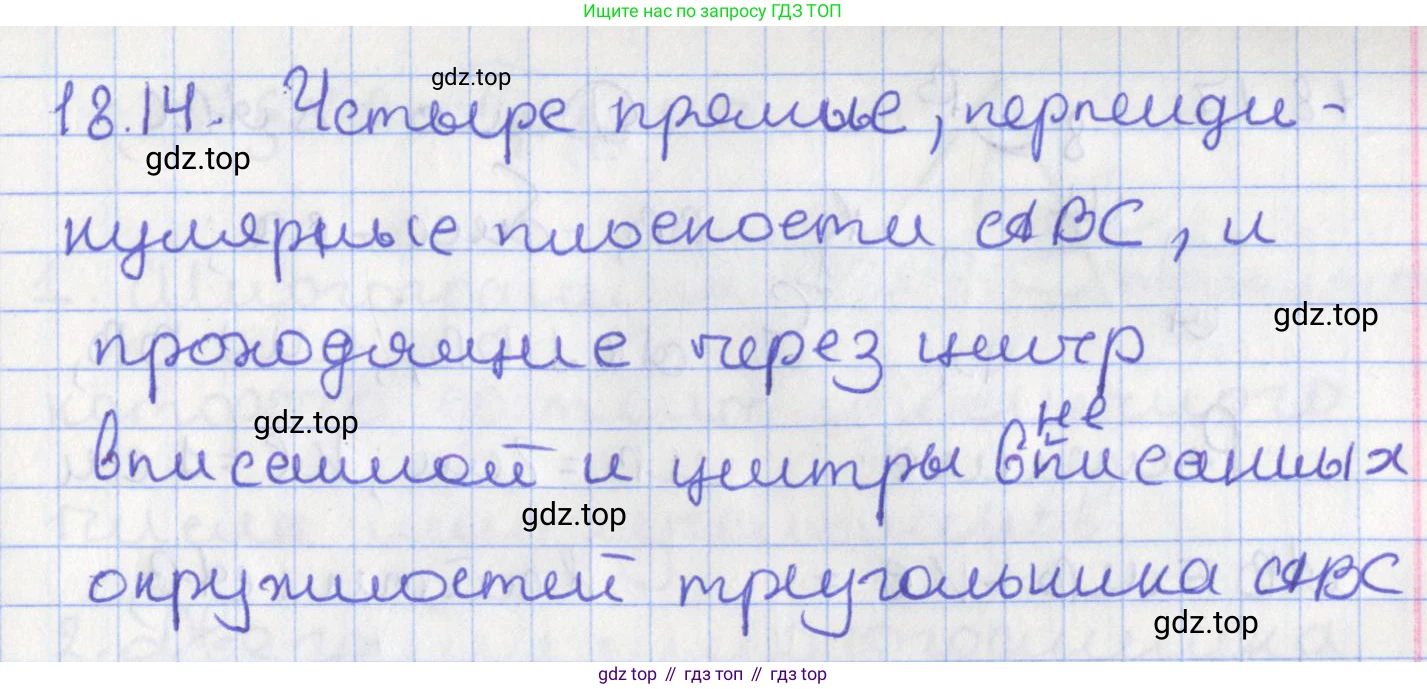 Ищите нас по запросу ГДЗ ТОП
gdz.top
18.14. Четыре прямые, перпенди-
gdz.top
кулярные плоскости ABC, и
gdz.top
проходящие через центр
gdz.top
не
вписанной и центры вписанных
gdz.top
окружностей треугольника ABC
gdz.top
gdz top // гдз топ // gdz top